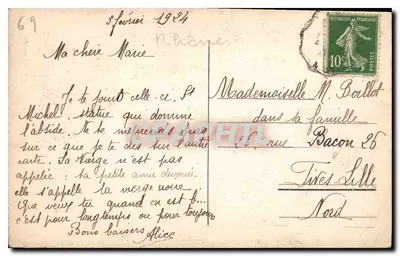 69
3 février 1924
Rhône
Ma chère Marie
Je te joint celle-ci. St
Michel, statue qui domine
l'abside. Je te
sur ce que je te dis sur l'autre
carte. La Vierge n'est pas
appelée : La petite
elle s'appelle la vierge noire
Que veux tu quand on est b...
c'est pour longtemps ou pour toujours
Bons baisers Alice
REPUBLIQUE FRANÇAISE
10c
POSTES
Mademoiselle M. Boillot
dans sa famille
26, rue Bacon 26
Fives-Lille
Nord